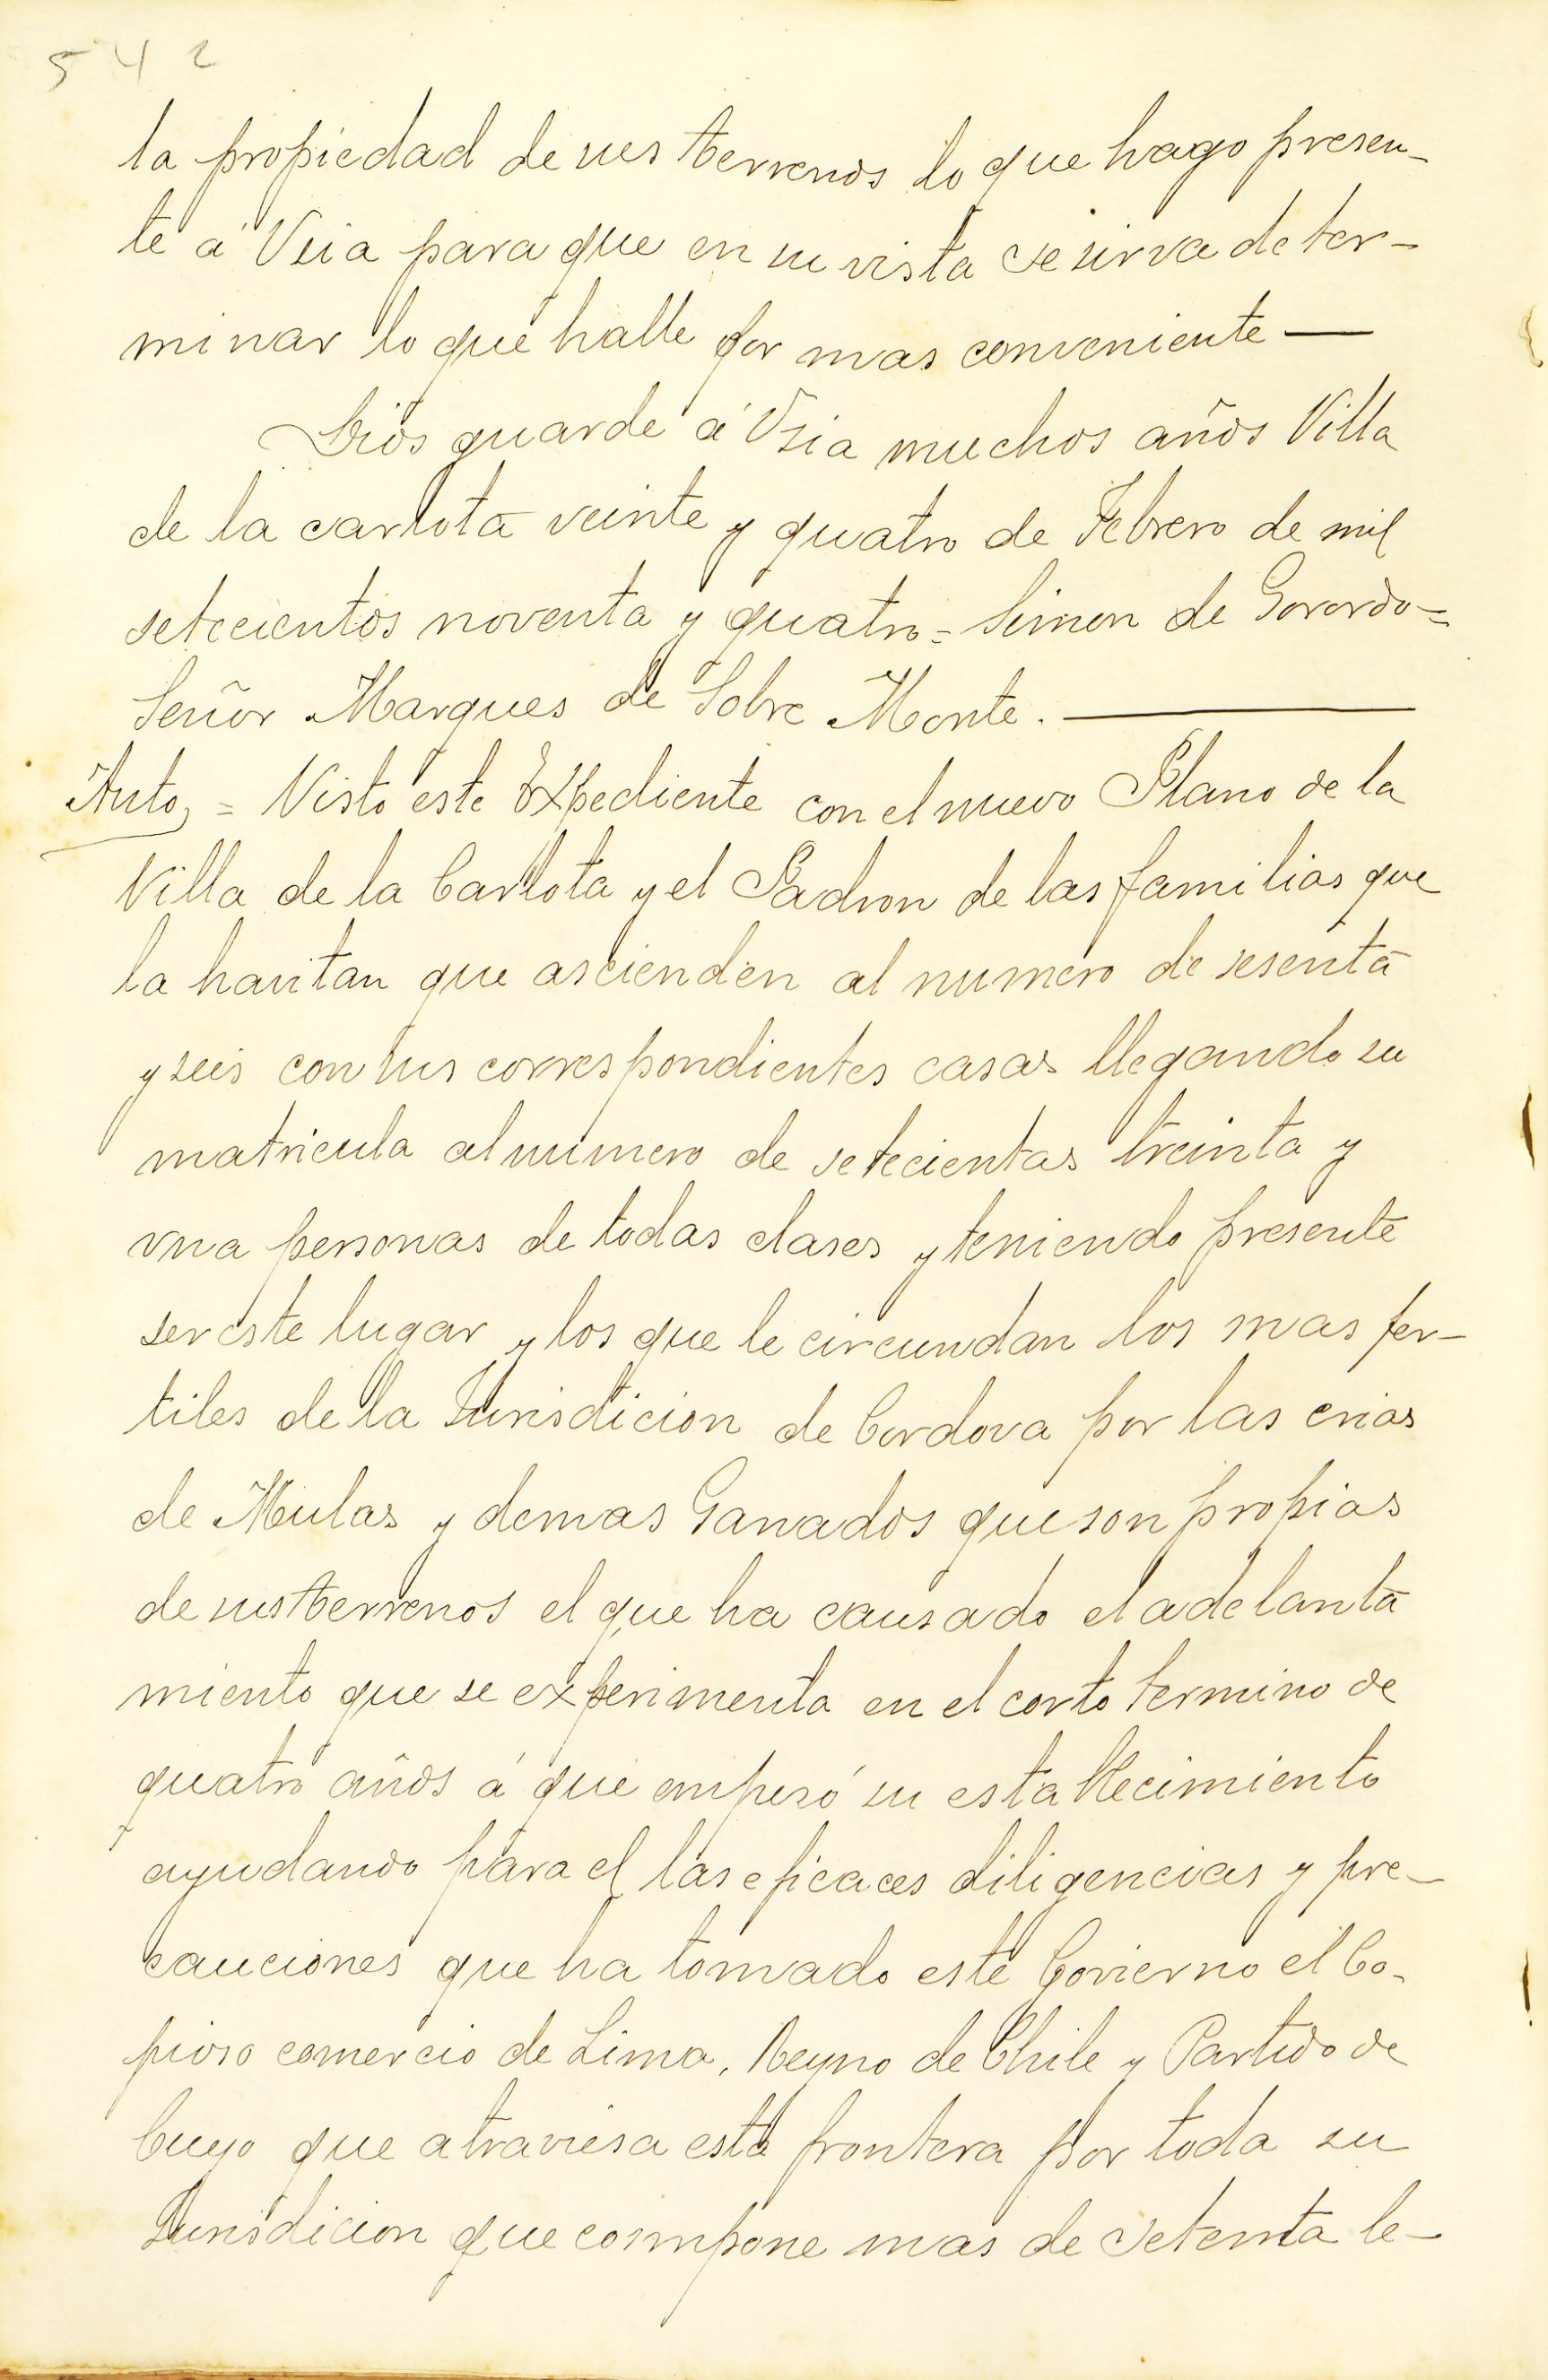 542
la propiedad de sus terrenos lo que hago presen-
te á Vsia para que en su vista se sirva deter-
minar lo que halle por mas conveniente —
Dios guarde á Vsia muchos años Villa
de la carlota veinte y quatro de Febrero de mil
setecientos noventa y quatro = Simon de Gorordo =
Señor Marques de Sobre Monte. —
Auto = Visto este Expediente con el nuevo Plano de la
Villa de la Carlota y el Padron de las familias que
la havitan que ascienden al numero de sesenta
y seis con sus correspondientes casas llegando su
matricula al numero de setecientas treinta y
vna personas de todas clases y teniendo presente
ser este lugar y los que le circundan los mas fer-
tiles de la Jurisdicion de Cordova por las crias
de Mulas y demas Ganados que son propias
de sus terrenos el que ha causado el adelanta
miento que se experimenta en el corto termino de
quatro años á que empesó su establecimiento
ayudando para el las eficaces diligencias y pre-
cauciones que ha tomado este Govierno el Co-
pioso comercio de Lima, Reyno de Chile y Partido de
Cuyo que atraviesa esta frontera por toda su
Jurisdicion que compone mas de setenta le-